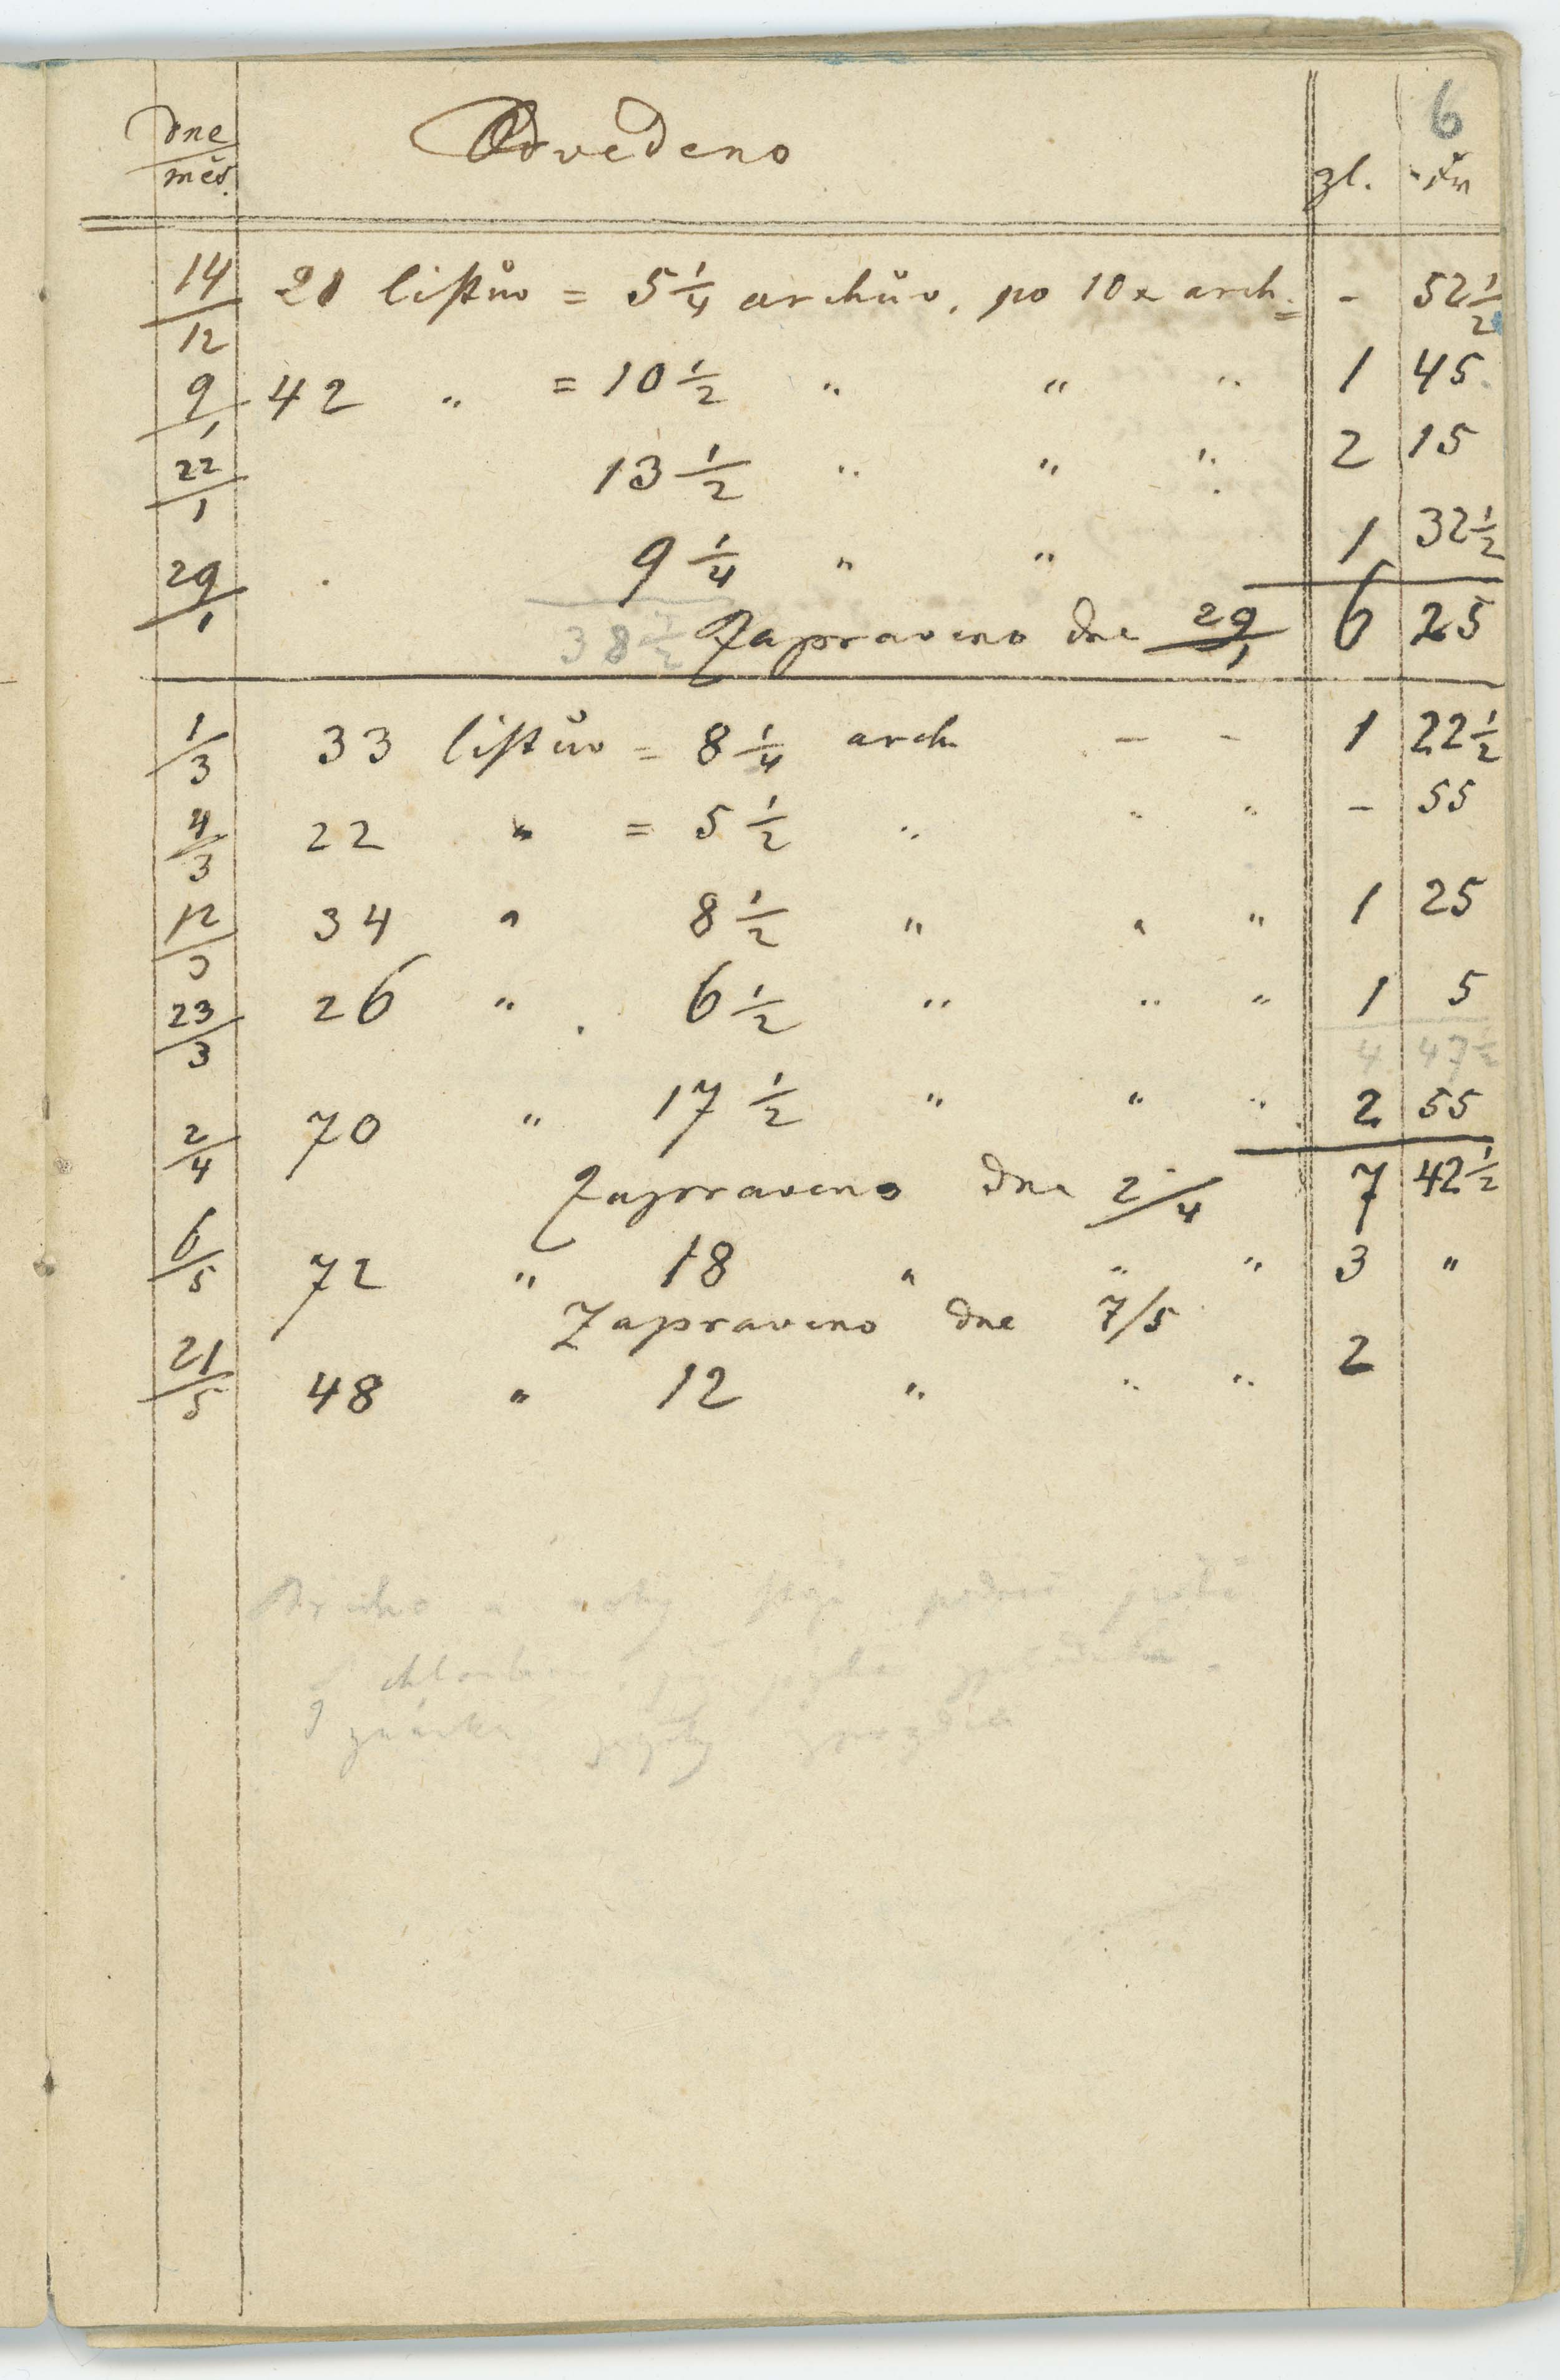 6
dne/měs. Odvedeno zl. kr
14/12 21 listův = 5 1/4 archův, po 10 x arch. - 52 1/2
9/1 42 " = 10 1/2 " " " 1 45
22/1 13 1/2 " " " 2 15
29/1 9 1/4 " " 1 32 1/2
38 1/2 Zapraveno dne 29/1 6 25
1/3 33 listův = 8 1/4 arch - - 1 22 1/2
4/3 22 " = 5 1/2 " " " - 55
12/3 34 " 8 1/2 " " " 1 25
23/3 26 " 6 1/2 " " " 1 5
4 47 1/2
2/4 70 " 17 1/2 " " " 2 55
Zapraveno dne 2/4 7 42 1/2
6/5 72 " 18 " " " 3 "
Zapraveno dne 7/5
21/5 48 " 12 " " " 2